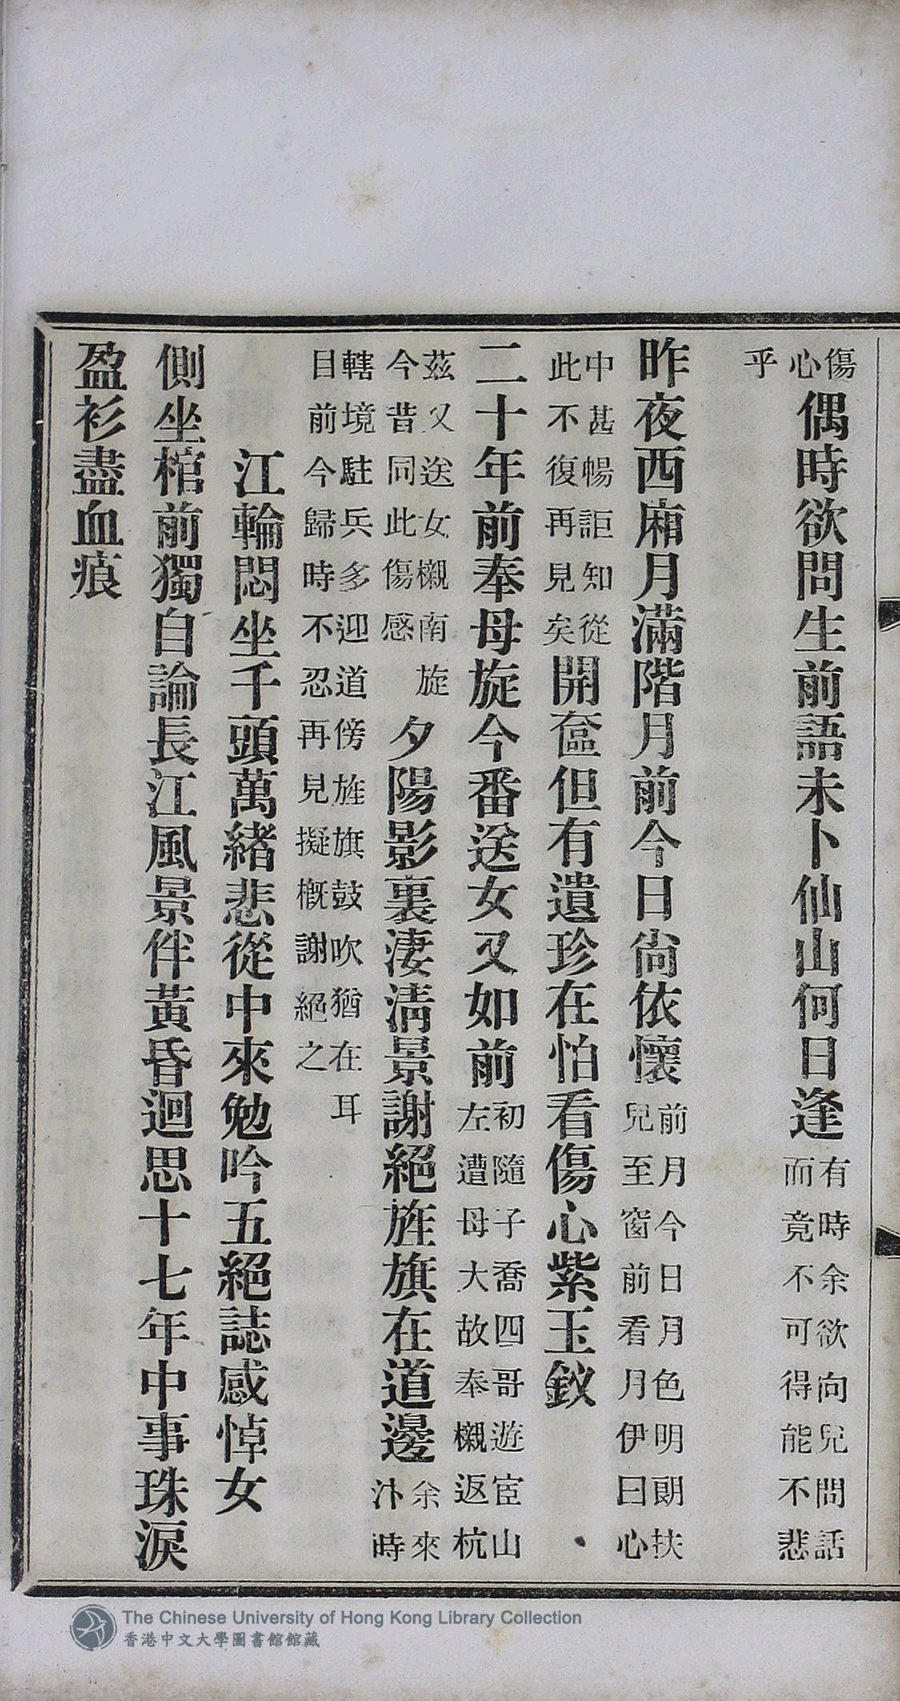 傷
心
偶時欲問生前語未卜仙山何日逢
有時余欲向兒問話
而竟不可得能不悲
乎
昨夜西廂月滿階月前今日尚依懷
前月今日月色明朗扶
兒至窗前看月伊曰心
中甚暢詎知從
此不復再見矣
開奩但有遺珍在怕看傷心紫玉釵
二十年前奉母旋今番送女又如前
初隨子喬四哥遊宦山
左遭母大故奉櫬返杭
茲又送女櫬南旋
今昔同此傷感
夕陽影裏淒清景謝絕旌旗在道邊
余來
汴時
轄境駐兵多迎道傍旌旗鼓吹猶在耳
目前今歸時不忍再見擬概謝絕之
江輪悶坐千頭萬緒悲從中來勉吟五絕誌感悼女
側坐棺前獨自論長江風景伴黃昏迴思十七年中事珠淚
盈衫盡血痕
The Chinese University of Hong Kong Library Collection
香港中文大學圖書館館藏